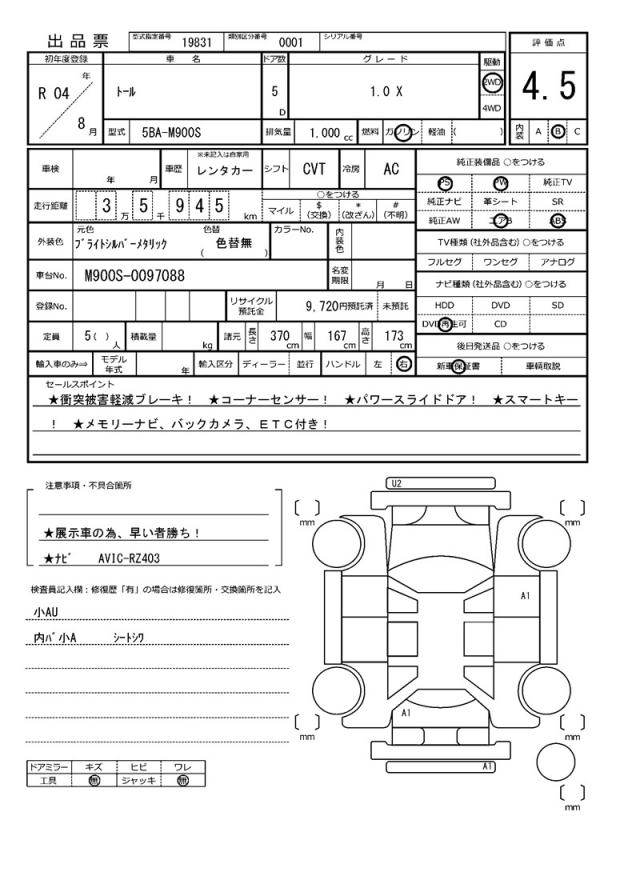 出品票 型式指定番号 19831 類別区分番号 0001 シリアル番号
初年度登録 車名 ドア数 グレード 駆動 評価点
R 04 年 8 月 トール 5 D 1.0 X 2WD 4WD 4.5
型式 5BA-M900S 排気量 1.000 cc 燃料 ガソリン 軽油 ( ) 内装 A B C
車検 年 月 車歴 ※未記入は自家用 レンタカー シフト CVT 冷房 AC
走行距離 3 万 5 千 9 4 5 km ○をつける
マイル $(交換) *(改ざん) #(不明)
外装色 元色 ブライトシルバーメタリック 色替 ( 色替無 ) カラーNo. 内装色
車台No. M900S-0097088 名変期限 月 日
登録No. リサイクル預託金 9,720円預託済 未預託
定員 5( )人 積載量 kg 諸元 長さ 370 cm 幅 167 cm 高さ 173 cm
輸入車のみ⇒ モデル年式 年 輸入区分 ディーラー 並行 ハンドル 左 右
純正装備品 ○をつける
PS PW 純正TV
純正ナビ 革シート SR
純正AW エアB ABS
TV種類(社外品含む) ○をつける
フルセグ ワンセグ アナログ
ナビ種類(社外品含む) ○をつける
HDD DVD SD
DVD再生可 CD
後日発送品 ○をつける
新車保証書 車輌取説
セールスポイント
★衝突被害軽減ブレーキ! ★コーナーセンサー! ★パワースライドドア! ★スマートキー
! ★メモリーナビ、バックカメラ、ETC付き!
注意事項・不具合箇所
★展示車の為、早い者勝ち!
★ナビ AVIC-RZ403
検査員記入欄:修復歴「有」の場合は修復箇所・交換箇所を記入
小AU
内バ小A シートシワ
ドアミラー キズ ヒビ ワレ
工具 無 ジャッキ 無
U2
mm mm
A1
A1
mm mm
A1
mm